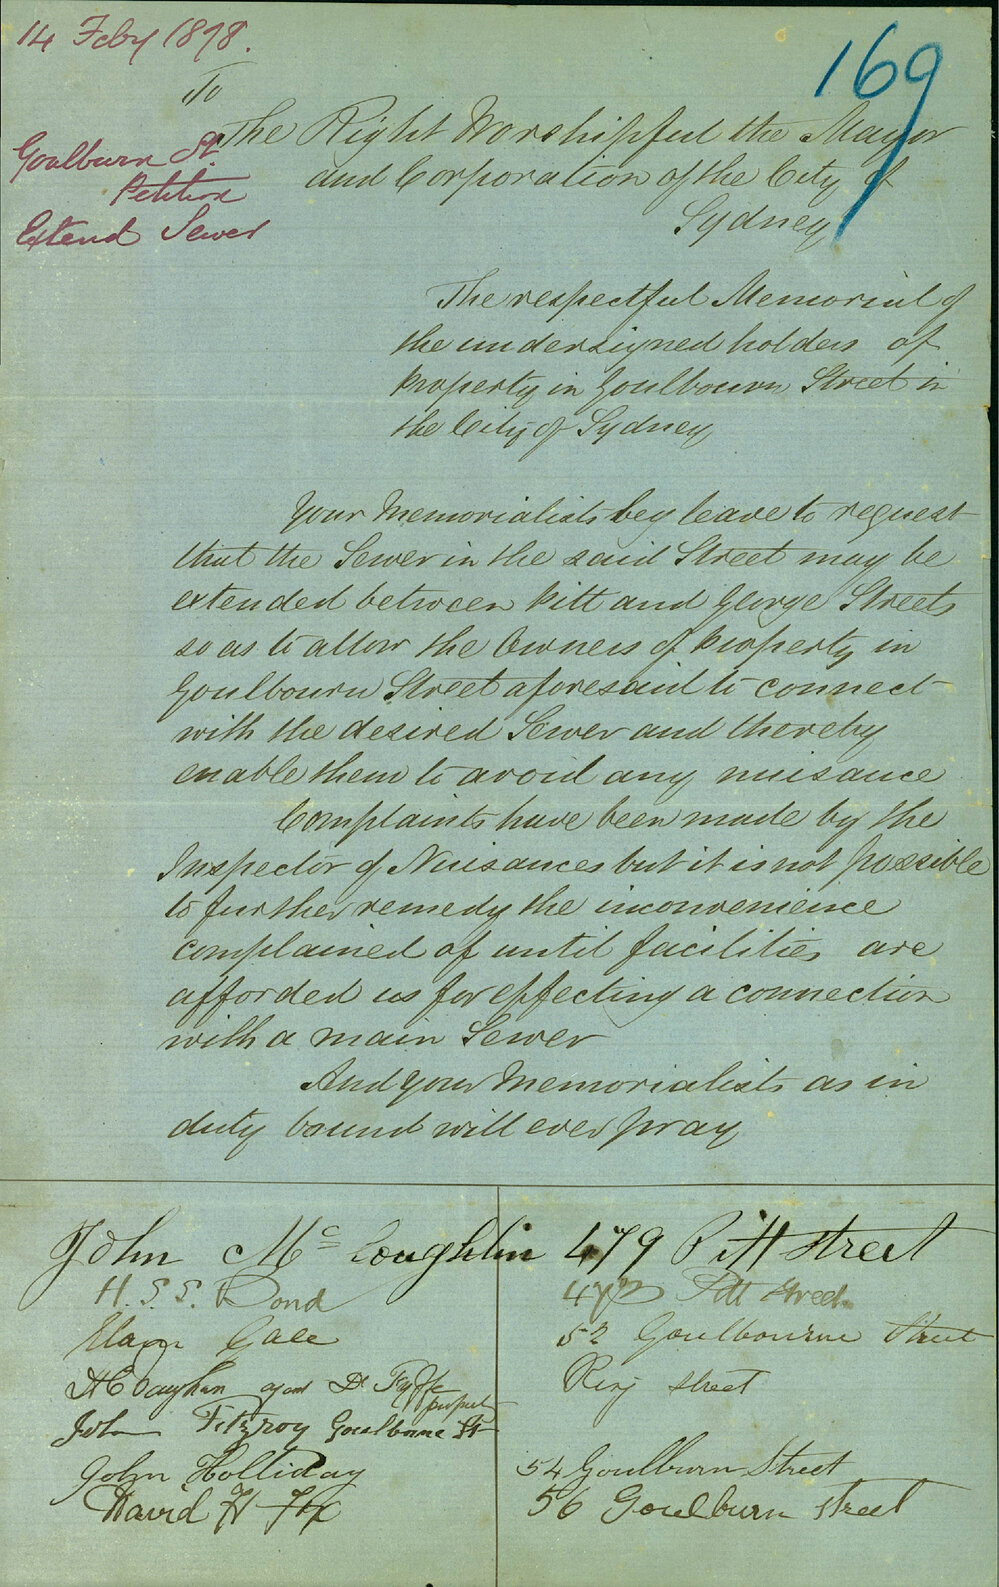 14 Feby 1878.
169
To
The Right Worshipful the Mayor
and Corporation of the City of
Sydney
Goulburn St.
Petition
Extend Sewer
The respectful Memorial of
the undersigned holders of
property in Goulbourn Street in
the City of Sydney
Your Memorialists beg leave to request
that the Sewer in the said Street may be
extended between Pitt and George Streets
so as to allow the Owners of property in
Goulbourn Street aforesaid to connect
with the desired Sewer and thereby
enable them to avoid any nuisance
Complaints have been made by the
Inspector of Nuisances but it is not possible
to further remedy the inconvenience
complained of until facilities are
afforded us for effecting a connection
with a main Sewer
And your Memorialists as in
duty bound will ever pray
John Mc Loughlin 479 Pitt Street
H. S. S. Bond Pitt Street
Gale 52 Goulbourne Street
Dr Fyffe property street
John Fitzroy Goulbourne St
John Holliday 54 Goulburn Street
David H Fox 56 Goulburn Street